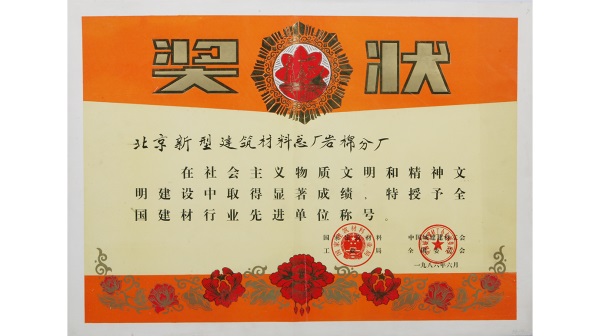 奖状
北京新型建筑材料总厂岩棉分厂
在社会主义物质文明和精神文
明建设中取得显著成绩，特授予全
国建材行业先进单位称号。
国家建筑材料
工业局
中国城建建材工会
全国委员会
一九八六年六月